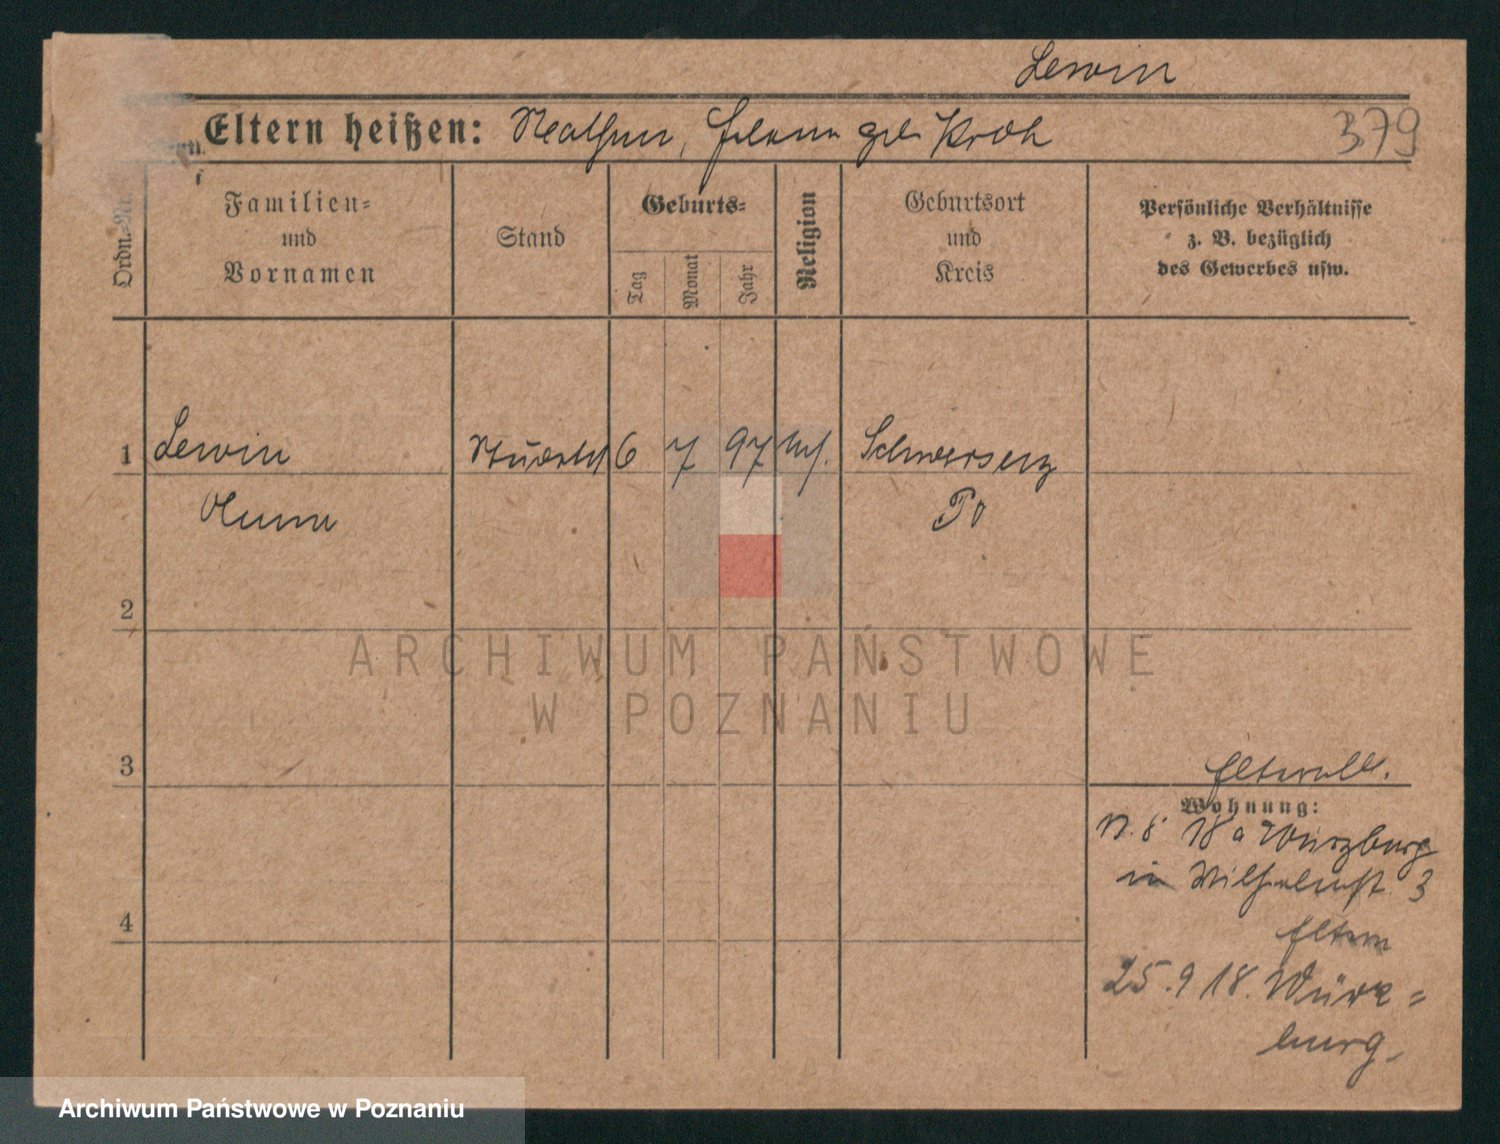 Lewin
Eltern heißen: Nathan, Helene geb. Kroh
379
Ordn.-Nr.
Familien-
und
Vornamen
Stand
Geburts-
Tag
Monat
Jahr
Religion
Geburtsort
und
Kreis
Persönliche Verhältnisse
z. B. bezüglich
des Gewerbes usw.
1 Lewin 6 7 97 Schwersenz
Po
2
3
Wohnung:
18 a Würzburg
in Wilhelmst. 3
Eltern
25. 9 18. Würz=
burg.
4
ARCHIWUM PAŃSTWOWE
W POZNANIU
Archiwum Państwowe w Poznaniu